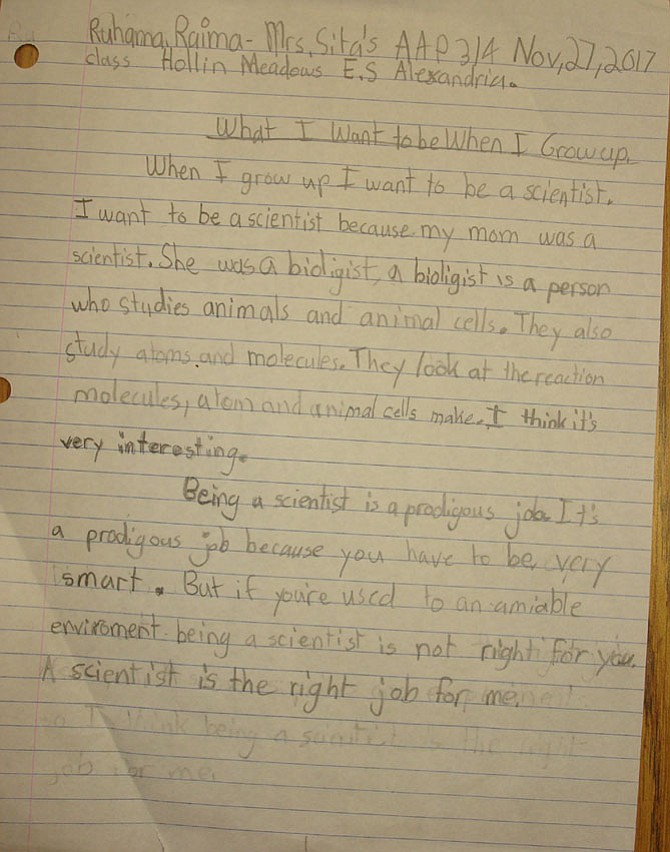 Ruhama, Raima- Mrs. Sita's AAP 3/4 Nov, 27, 2017
class Hollin Meadows E.S Alexandria.
What I Want to be When I Grow up.
When I grow up I want to be a scientist.
I want to be a scientist because my mom was a
scientist. She was a bioligist, a bioligist is a person
who studies animals and animal cells. They also
study atoms and molecules. They look at the reaction
molecules, atom and animal cells make. I think it's
very interesting.
Being a scientist is a prodigous job. It's
a prodigous job because you have to be very
smart. But if you're used to an amiable
enviroment being a scientist is not right for you.
A scientist is the right job for me.
so I think being a scintist is the right
job for me.